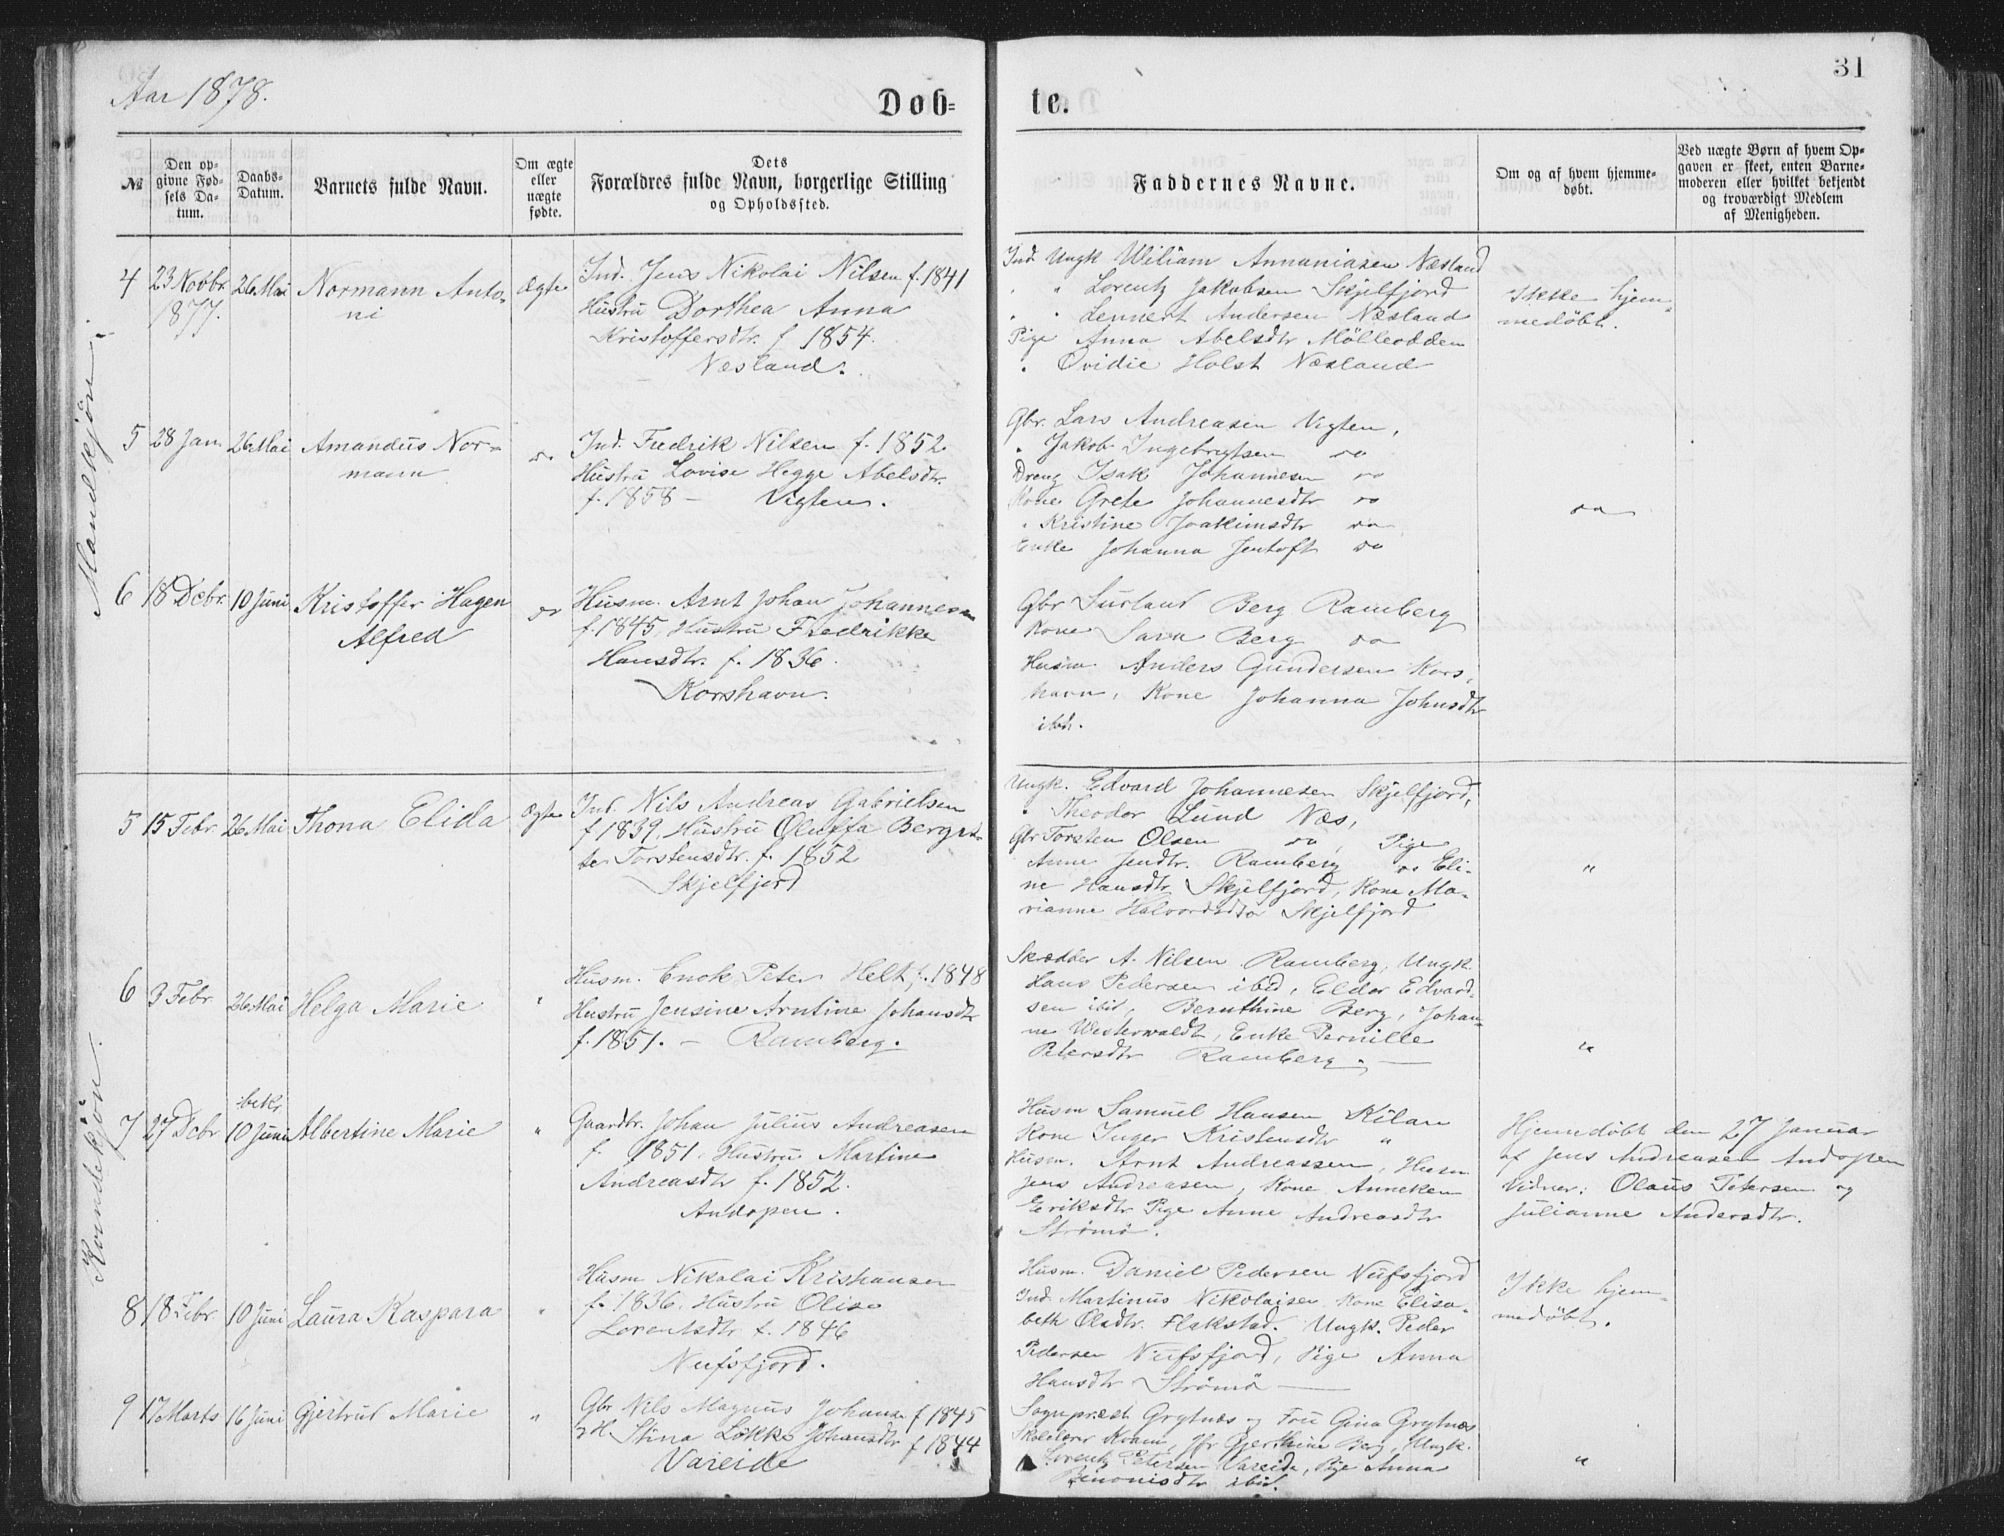 Aar 1878.
Døb=
te.
31
№
Den op=
givne Fød=
sels Da=
tum.
Daabs=
Datum.
Barnets fulde Navn.
Om ægte
eller
uægte
fødte.
Dets
Forældres fulde Navn, borgerlige Stilling
og Opholdssted.
Faddernes Navne.
Om og af hvem hjemme=
døbt.
Ved uægte Børn af hvem Op=
gaven er skeet, enten Barne=
moderen eller hvilket bekjendt
og troværdigt Medlem
af Menigheden.
Mandkjøn.
4 23 Novbr. 26 Mai Normann Anto- Ægte
1877. ni
Ind. Jens Nikolai Nilsen f. 1841
Hustru Dorthea Anna
Kristoffersdtr. f 1854.
Næsland.
Ind. Ungk Wiliam Annaniasen Næsland
" " Lorentz Jakobsen Skjelfjord
" " Lennert Andersen Næsland
Pige Anna Abelsdtr Mölleodden
" Ovidie Holst Næsland
Ikke hjem-
medøbt.
5 28 Jan. 26 Mai Amandus Nor- do
mann
Ind. Fredrik Nilsen f. 1852
Hustru Lovise Hegge Abelsdtr.
f. 1858 - Vigten.
Gbr. Lars Andreasen Vigten,
" Jakob Ingebrigtsen do
Dreng Isak Johannesen do
Kone Grete Johannesdtr do
" Kristine Joakimsdtr do
Enke Johanna Jentoft do
do
6 18 Dcbr. 10 Juni Kristoffer Hagen do
Alfred
Husm. Arnt Johan Johannesen
f. 1845, Hustru Fredrikke
Hansdtr. f. 1836.
Korshavn.
Gbr Surland Berg Ramberg
Kone Sara Berg do
Husm. Anders Gundersen Kors-
havn, Kone Johanna Johnsdtr
ibd.
Kvindekjøn.
5 15 Febr. 26 Mai Thona Elida Ægte
Ind. Nils Andreas Gabrielsen
f 1839, Hustru Oluffa Bergit-
te Torstensdtr. f. 1852
Skjelfjord
Ungk. Edvard Johannesen Skjelfjord,
" Theodor Lund Næs,
Gbr Torsten Olsen do, Pige
Anne Jendtr. Ramberg do Eli-
ne Hansdtr Skjelfjord, Kone Ma-
rianne Halvordsdtr Skjelfjord
"
6 3 Febr 26 Mai Helga Marie "
Husm. Enok Peter Helt f. 1848
Hustru Jensine Arntine Johansdtr
f. 1851. - Ramberg.
Skrædder A. Nilsen Ramberg, Ungk.
Hans Pedersen ibid, Eldor Edvard-
sen ibid, Bernthine Berg, Johan-
ne Westerwaldt, Enke Pernille
Petersdtr Ramberg. -
"
bekr.
7 27 Dcbr 10 Juni Albertine Marie "
Gaardbr. Johan Julius Andreasen
f. 1851. Hustru Martine
Andreasdtr f. 1852.
Andopen.
Husm Samuel Hansen Kilan
Kone Inger Kristensdtr "
Husm. Arnt Andreassen, Husm
Jens Andreasen, Kone Anneken
Eriksdtr Pige Anne Andreasdtr
Strømø.
Hjemmedøbt den 27 Januar
af Jens Andreasen Andopen
Vidner: Olaus Petersen og
Julianne Andersdtr.
8 18 Febr 10 Juni Laura Kaspara "
Husm Nikolai Kristiansen
f. 1836, Hustru Olise
Lorentsdtr f. 1846
Nufsfjord.
Husm. Daniel Pedersen Nufsfjord
Ind. Martinus Nikolaisen Kone Elisa-
beth Olsdtr. Flakstad. Ungk. Peder
Pedersen Nufsfjord, Pige Anna
Hansdtr Strømø -
Ikke hjem-
medøbt.
9 17 Marts 16 Juni Gjertrud Marie "
Gbr Nils Magnus Johanse f 1845
H. Stina Løkke Johansdtr f 1844
Vareide
Sognepræst Grytnæs og Fru Gina Grytnæs
Skolelærer Kvam, Jfr Gjerthine Berg, Ungk.
Lorentz Petersen Vareide, Pige Anna
Benonisdtr ibid.
"